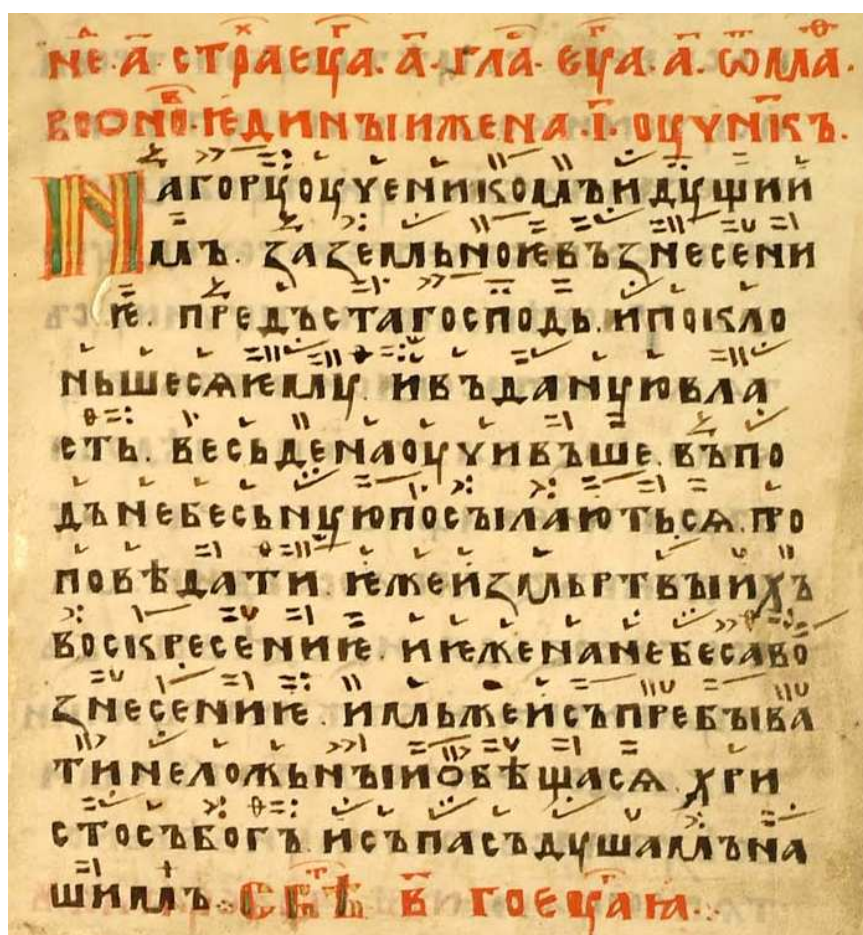 НЕ·А҃·СТРАЕЦА·А҃·ГЛА·ЕЦА·А҃·ѾМЛА·
ВООНО·ѤДИНЪІИЖЕНА·І҃·ОУЧНІКЪ.
НАГОРУОУЧЕНИКОМЪИДУЩИИ
МЪ. ЗАЗЕМЬНОѤВЪЗНЕСЕНИ
Ѥ. ПРЕДЪСТАГОСПОДЬ. ИПОКЛО
НЬШЕСѦѤМУ. ИВЪДАНУЮВЛА
СТЬ. ВЕСЬДЕНАОУЧИВЪШЕ. ВЪПО
ДЪНЕБЕСЬНУЮПОСЪІЛАЮТЬСѦ. ПРО
ПОВѢДАТИ. ѤЖЕИЗМЬРТВЪІИХЪ
ВОСКРЕСЕНИѤ. ИѤЖЕНАНЕБЕСАВО
ЗНЕСЕНИѤ. ИМЬЖЕИСЪПРЕБЪІВА
ТИНЕЛОЖЬНЪІИОБѢЩАСѦ. ХРИ
СТОСЪБОГЪ. ИСЪПАСЪДУШАМЪНА
ШИМЪ· В҃ ГОЕЦА